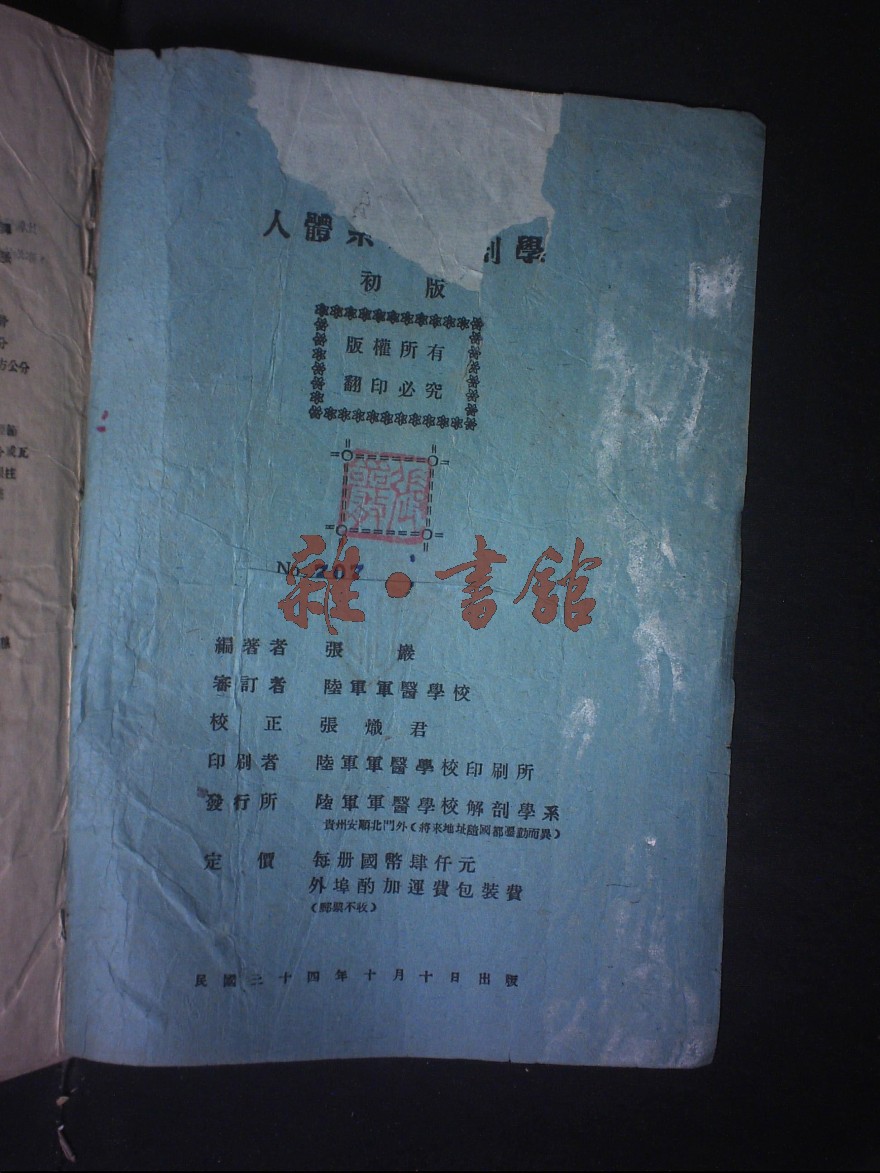 人體系 剖學
初版
版權所有
翻印必究
張巖
No. 707
雜·書館
編著者 張巖
審訂者 陸軍軍醫學校
校正 張熾君
印刷者 陸軍軍醫學校印刷所
發行所 陸軍軍醫學校解剖學系
貴州安順北門外（將來地址隨國都遷動而異）
定價 每册國幣肆仟元
外埠酌加運費包裝費
（郵票不收）
民國三十四年十月十日出版